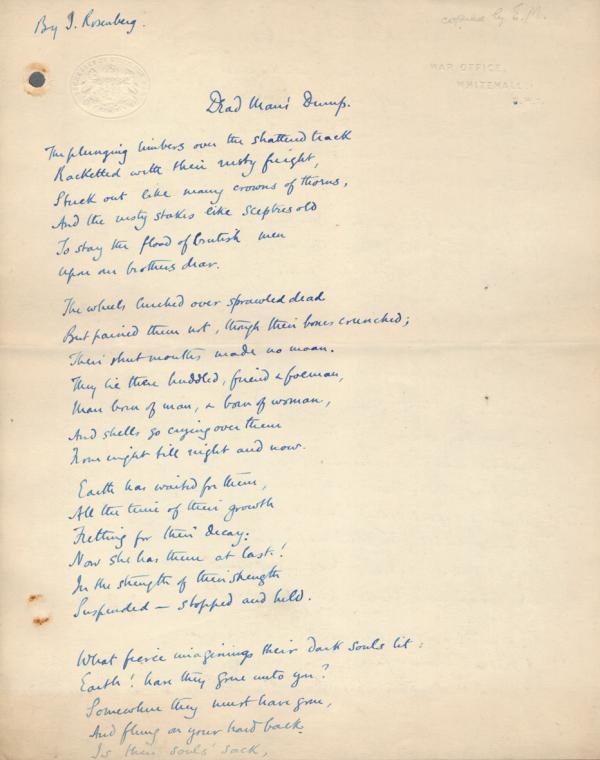 By I. Rosenberg.
copied by E. M.
WAR OFFICE,
WHITEHALL,
S.W.1.
Dead Man's Dump.
The plunging limbers over the shattered track
Racketted with their rusty freight,
Stuck out like many crowns of thorns,
And the rusty stakes like sceptres old
To stay the flood of brutish men
Upon our brothers dear.
The wheels lurched over sprawled dead
But pained them not, though their bones crunched;
Their shut mouths made no moan.
They lie there huddled, friend & foeman,
Man born of man, & born of woman,
And shells go crying over them
From night till night and now.
Earth has waited for them,
All the time of their growth
Fretting for their decay:
Now she has them at last!
In the strength of their strength
Suspended — stopped and held.
What fierce imaginings their dark souls lit:
Earth! have they gone into you?
Somewhere they must have gone,
And flung on your hard back
Is their souls' sack,